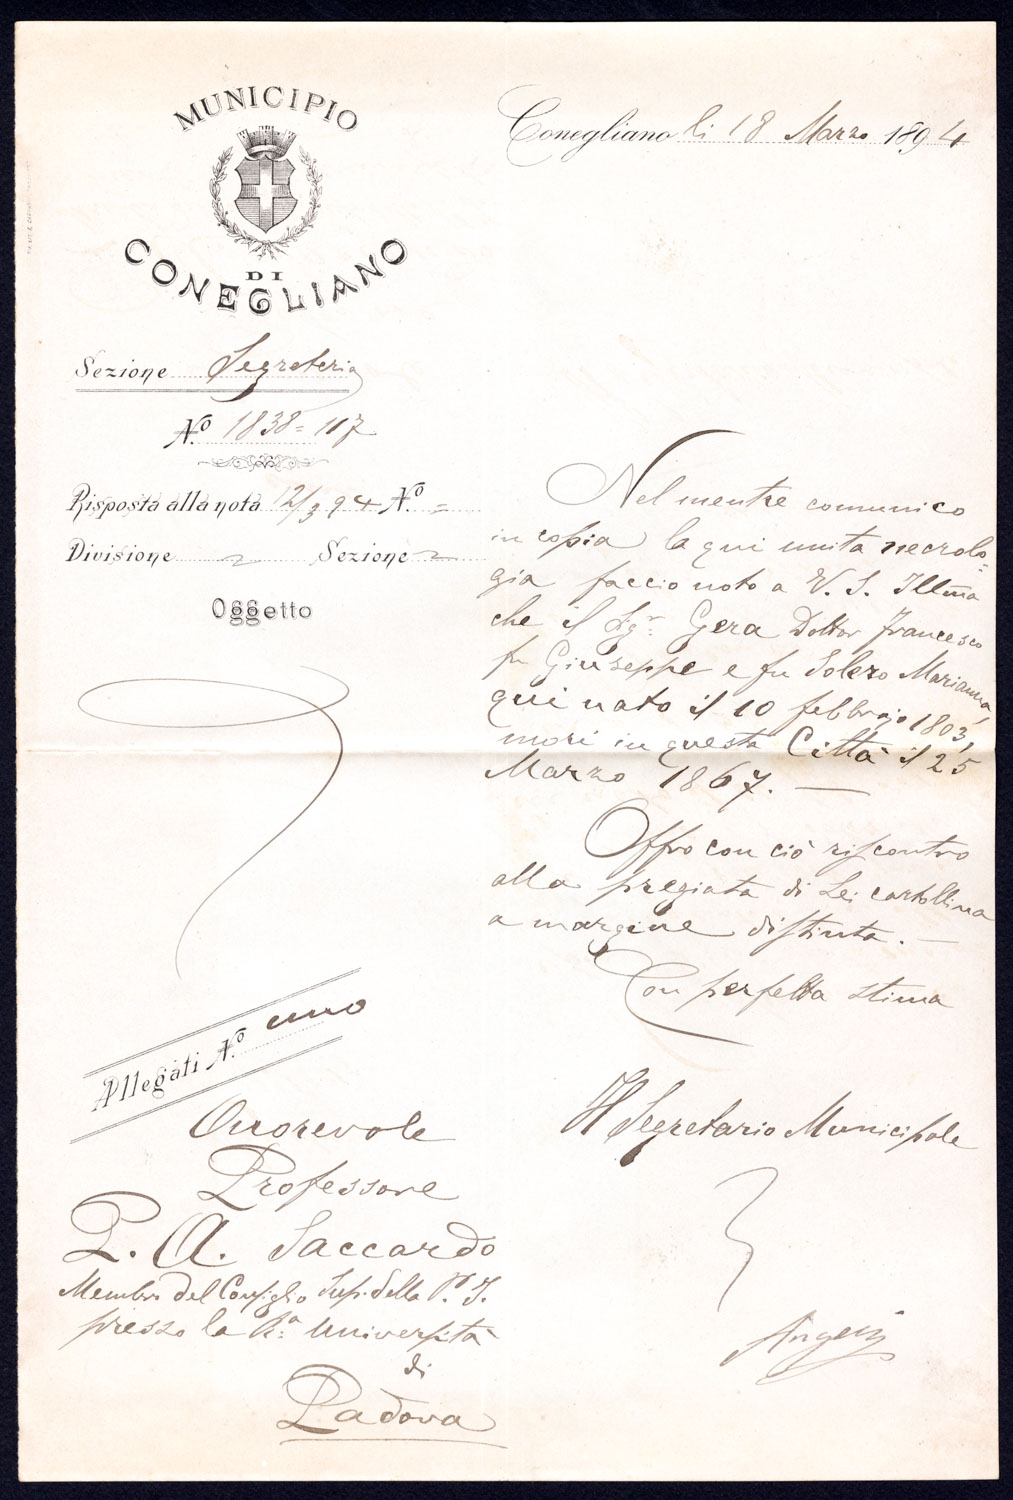 MUNICIPIO
DI
CONEGLIANO
Conegliano li 18 Marzo 1894
Sezione Segreteria
N.º 1838=117
Risposta alla nota 12/3 94 N.º =
Divisione Sezione
Oggetto
Nel mentre comunico
in copia la qui unita necrolo=
gia faccio noto a V. S. Illma
che il Sigr. Gera Dottor Francesco
fu Giuseppe e fu Solero Marianna,
qui nato il 10 febbrajo 1803,
morì in questa Città il 25
Marzo 1867. —
Offro con ciò riscontro
alla pregiata di Lei cartollina
a margine distinta. —
Con perfetta stima
Allegati N.º uno
Il Segretario Municipale
Onorevole
Professore
P. A. Saccardo
Membro del Consiglio Sup. della P. I.
presso la Ra. Università
di
Padova